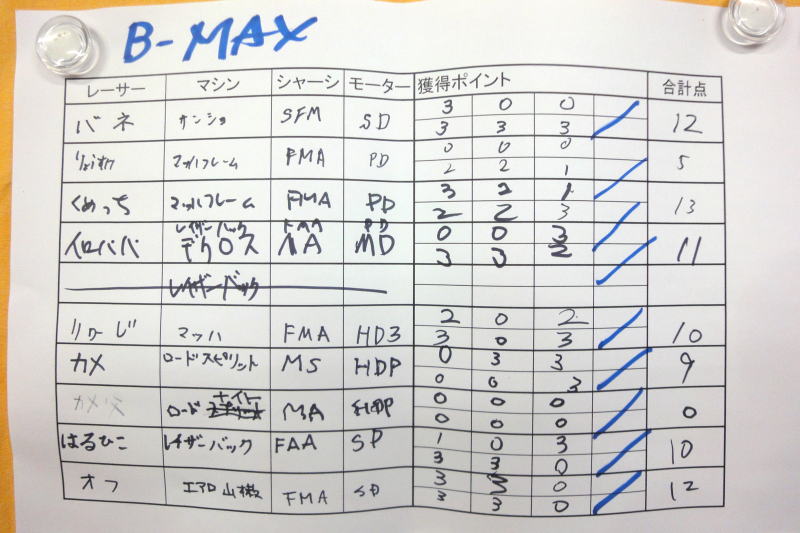 B-MAX
レーサー マシン シャーシ モーター 獲得ポイント 合計点
3 0 0
バネ SFM SD 12
3 3 3
0 0 0
マッハフレーム FMA PD 5
2 2 1
3 2 1
くめっち マッハフレーム FMA PD 13
2 2 3
レイザーバック FMA PD 0 0 3
イロババ デクロス MA MD 11
3 3 2
レイザーバック
2 0 2
りゅーじ マッハ FMA HD3 10
3 0 3
0 3 3
カメ ロードスピリット MS HDP 9
0 0 3
0 0 0
カメ父 ロード ナイト MA HDP 0
0 0 0
1 0 3
はるひこ レイザーバック FAA SP 10
3 3 0
3 3 0
オフ エアロ FMA SD 12
3 3 0